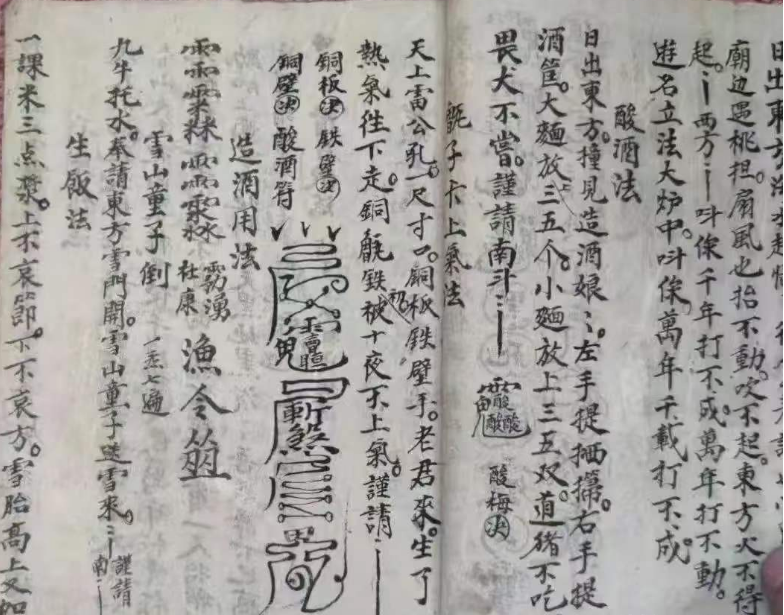 廟边遇桃担。扇風也抬不動。吹不起。東方火不得
起。⋮西方⋮叫你千年打不成。萬年打不動。
遊名立法大炉中。叫你萬年千載打不成。
酸酒法
日出東方。撞見造酒娘⋮。左手提栖箒。右手提
酒筐。大麵放三五个。小麵放上三五双。道緒不吃
畏犬不嘗。謹請南斗⋮
酸梅决
甑子卡上氣法
天上雷公孔。一尺寸口。銅板鉄壁手。老君來。生了
熱氣往下走。銅甑鉄被十夜不上氣。謹請
銅板决 鉄壁决
銅壁决 酸酒符
造酒用法
雪山童子倒
杜康
漁令
一炁七遍
九牛托水。奉請東方雪門開。雪山童子送雪來。⋮謹請南
生飯法
一課米三点漿。上不哀節。下不哀方。雪胎高上又如